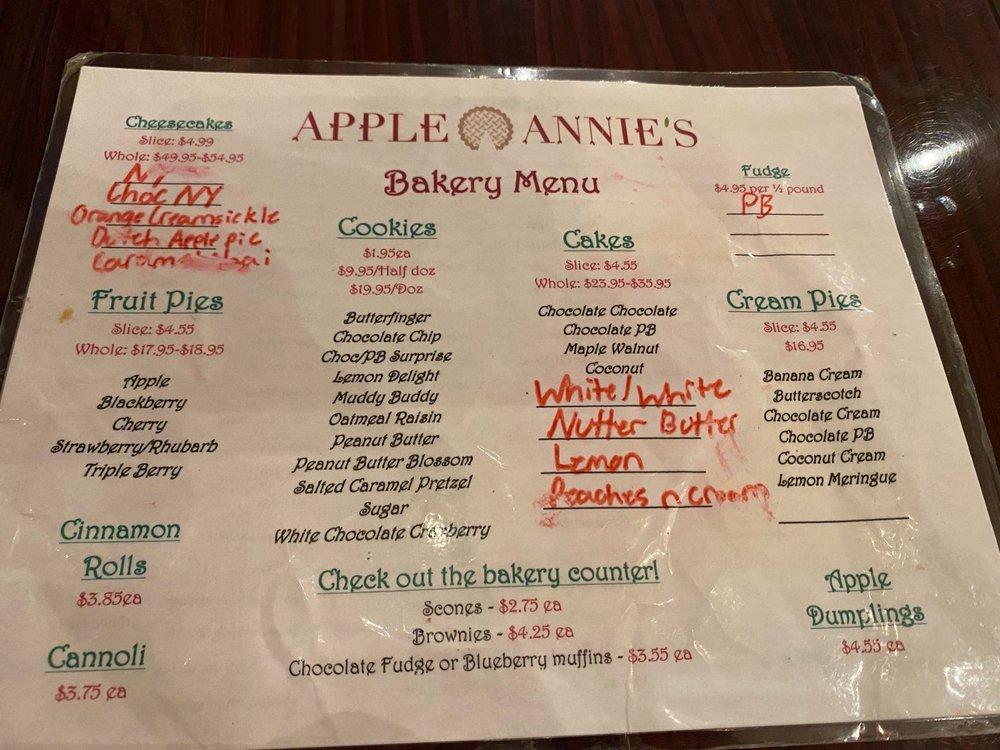 APPLE ANNIE'S
Bakery Menu
Cheesecakes
Slice: $4.99
Whole: $49.95-$54.95
NY
Choc NY
Orange Creamsickle
Dutch Apple pie
Fruit Pies
Slice: $4.55
Whole: $17.95-$18.95
Apple
Blackberry
Cherry
Strawberry/Rhubarb
Triple Berry
Cinnamon
Rolls
$3.85ea
Cannoli
$3.75 ea
Cookies
$1.95ea
$9.95/Half doz
$19.95/Doz
Butterfinger
Chocolate Chip
Choc/PB Surprise
Lemon Delight
Muddy Buddy
Oatmeal Raisin
Peanut Butter
Peanut Butter Blossom
Salted Caramel Pretzel
Sugar
White Chocolate Cranberry
Cakes
Slice: $4.55
Whole: $23.95-$35.95
Chocolate Chocolate
Chocolate PB
Maple Walnut
Coconut
White/White
Nutter Butter
Lemon
Peaches n Cream
Fudge
$4.95 per ½ pound
PB
Cream Pies
Slice: $4.55
$16.95
Banana Cream
Butterscotch
Chocolate Cream
Chocolate PB
Coconut Cream
Lemon Meringue
Check out the bakery counter!
Scones - $2.75 ea
Brownies - $4.25 ea
Chocolate Fudge or Blueberry muffins - $3.55 ea
Apple
Dumplings
$4.55 ea